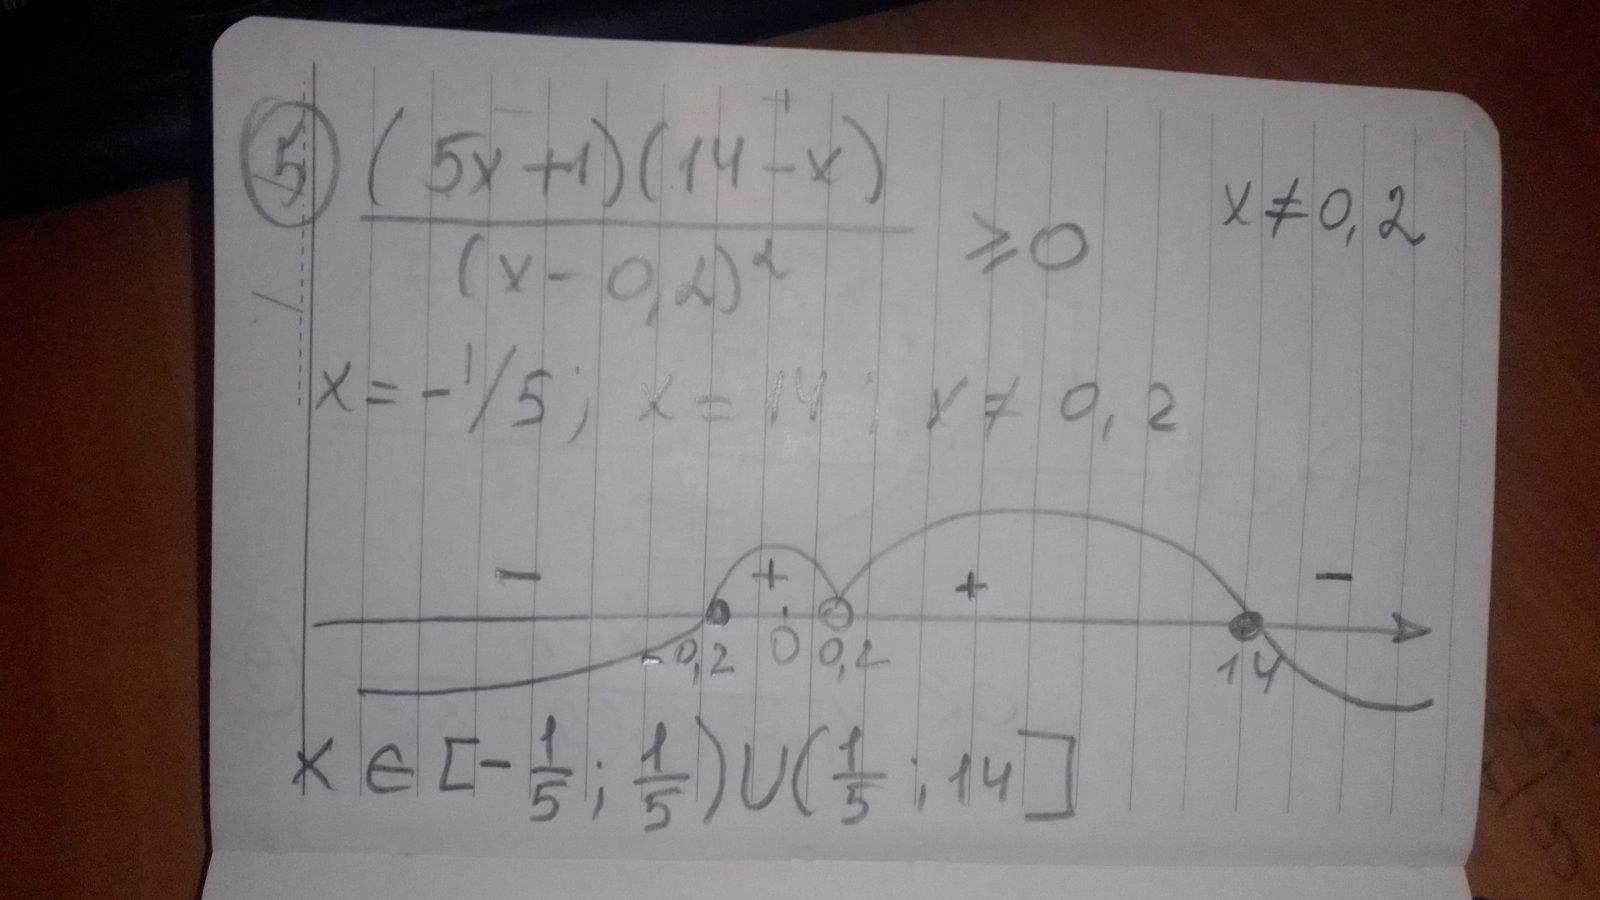 5 (5x+1)(14-x)
(x-0,2)² ≥0 x≠0,2
x=-1/5; x=14; x≠0,2
- + + -
-0,2 0 0,2 14
x∈[-1/5; 1/5)∪(1/5; 14]